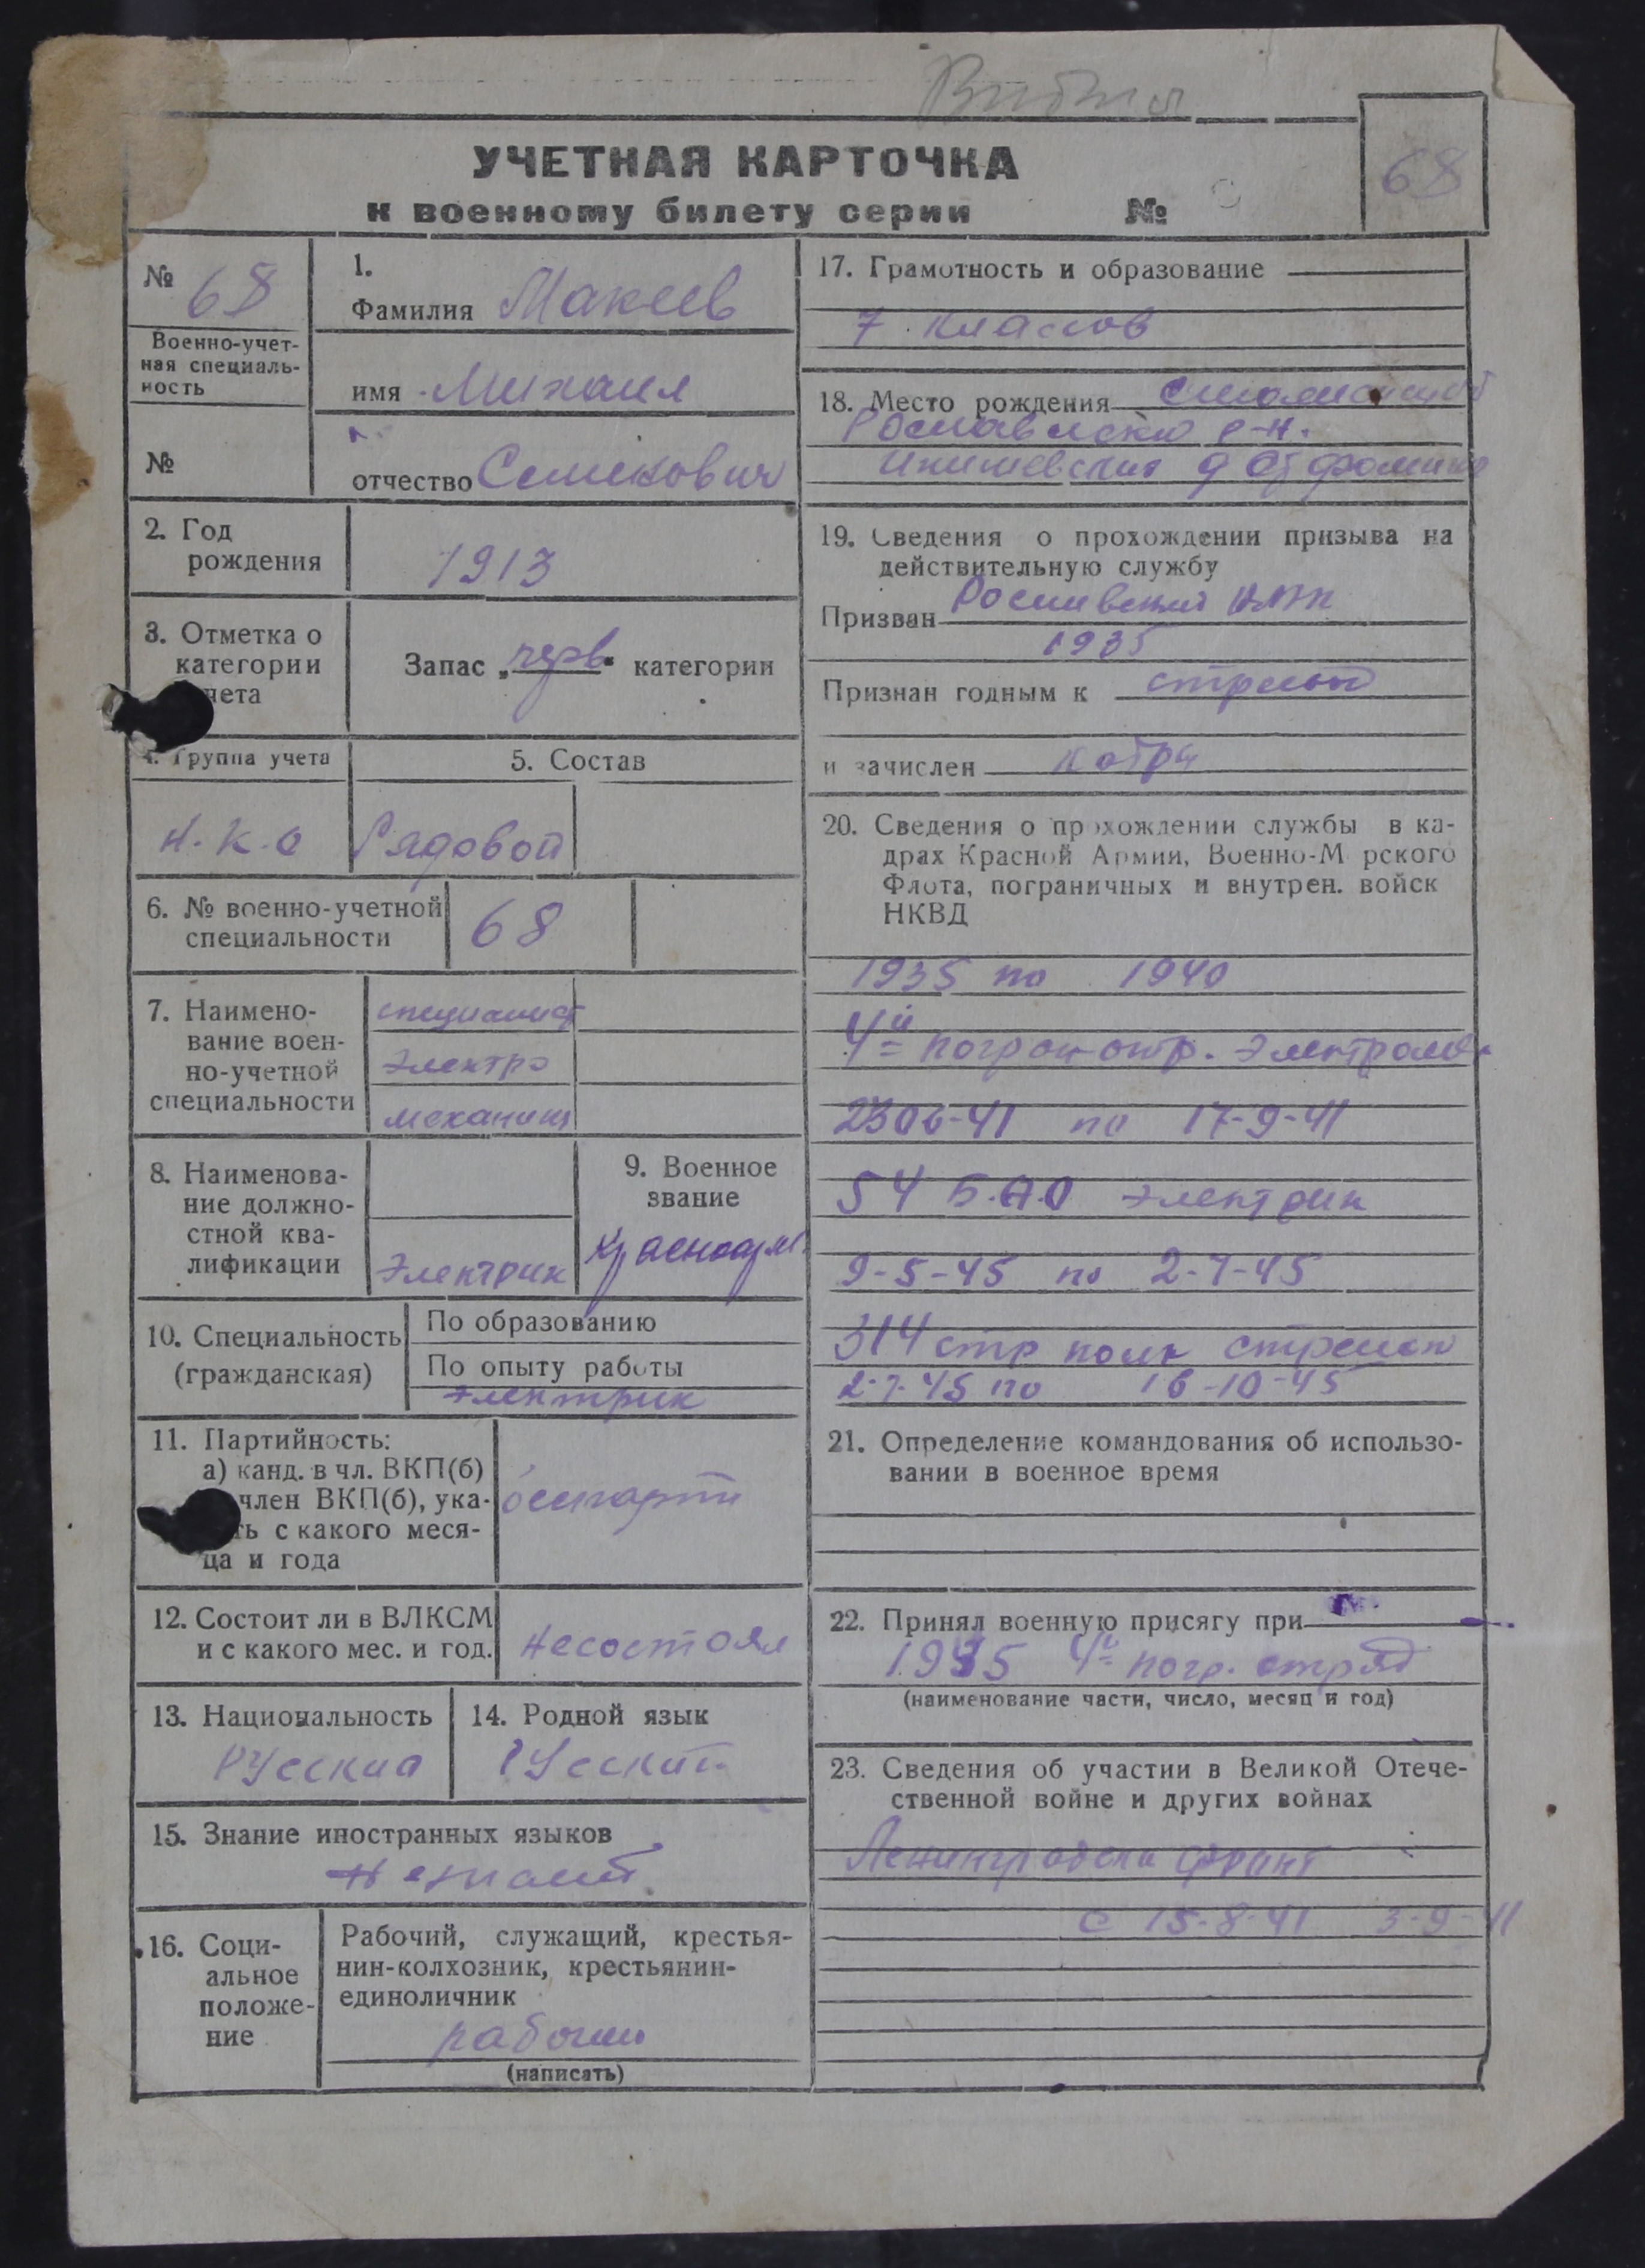 УЧЕТНАЯ КАРТОЧКА
к военному билету серии №
68
№ 68
Военно-учет-
ная специаль-
ность
№
1.
Фамилия Макеев
имя Михаил
отчество
2. Год
рождения
1913
3. Отметка о
категории
чета
Запас „перв“ категории
4. Группа учета
5. Состав
Н.К.О
Рядовой
6. № военно-учетной
специальности
68
7. Наимено-
вание воен-
но-учетной
специальности
специалист
электро
механик
8. Наименова-
ние должно-
стной ква-
лификации
Электрик
9. Военное
звание
Красноарм.
10. Специальность
(гражданская)
По образованию
По опыту работы
электрик
11. Партийность:
а) канд. в чл. ВКП(б)
член ВКП(б), ука-
ть с какого меся-
ца и года
беспарти
12. Состоит ли в ВЛКСМ
и с какого мес. и год.
несостоял
13. Национальность
Русский
14. Родной язык
Русский
15. Знание иностранных языков
незнает
16. Соци-
альное
положе-
ние
Рабочий, служащий, крестья-
нин-колхозник, крестьянин-
единоличник
рабочий
(написать)
17. Грамотность и образование
7 классов
18. Место рождения
р-н.
19. Сведения о прохождении призыва на
действительную службу
Призван
1935
Признан годным к
и зачислен
20. Сведения о прохождении службы в ка-
драх Красной Армии, Военно-М рского
Флота, пограничных и внутрен. войск
НКВД
1935 по 1940
4й погран отр.
2306-41 по 17-9-41
54 Б.А.О электрик
9-5-45 по 2-7-45
314 стр полк стрелок
2-7-45 по 16-10-45
21. Определение командования об использо-
вании в военное время
22. Принял военную присягу при
1935 4й погр. отряд
(наименование части, число, месяц и год)
23. Сведения об участии в Великой Отече-
ственной войне и других войнах
Ленинградски фронт
с 15-8-41 3-9-41